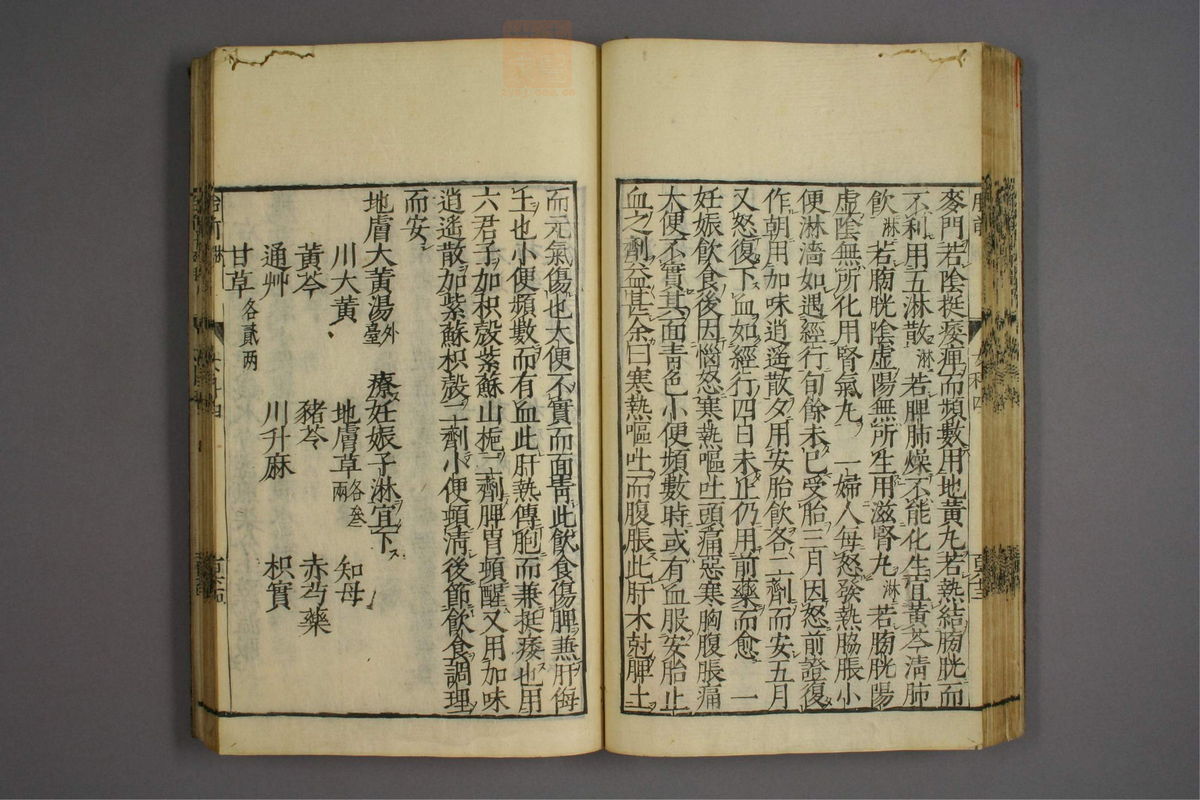 麥門若陰挺痿痺而頻數用地黃丸若熱結膀胱而
不利用五淋散淋若脾肺燥不能化生宜黃芩清肺
飲淋若膀胱陰虛陽無所生用滋腎丸淋若膀胱陽
虛陰無所化用腎氣丸 一婦人每怒發熱脇脹小
便淋濇如遇經行旬餘未已受胎三月因怒前證復
作朝用加味逍遙散夕用安胎飲各二劑而安五月
又怒復下血如經行四日未止仍用前藥而愈 一
妊娠飲食後因惱怒寒熱嘔吐頭痛惡寒胸腹脹痛
大便不實其面青色小便頻數時或有血服安胎止
血之劑益甚余曰寒熱嘔吐而腹脹此肝木尅脾土
而元氣傷也大便不實而面青此飲食傷脾兼肝侮
土也小便頻數而有血此肝熱傳胞而兼挺痿也用
六君子加枳殼紫蘇山梔二劑脾胃頓醒又用加味
逍遙散加紫蘇枳殼二劑小便頓清後節飲食調理
而安
地膚大黃湯外臺 療妊娠子淋宜下
川大黃 地膚草各叁兩 知母
黃芩 豬苓 赤芍藥
通艸 川升麻 枳實
甘草各貳两